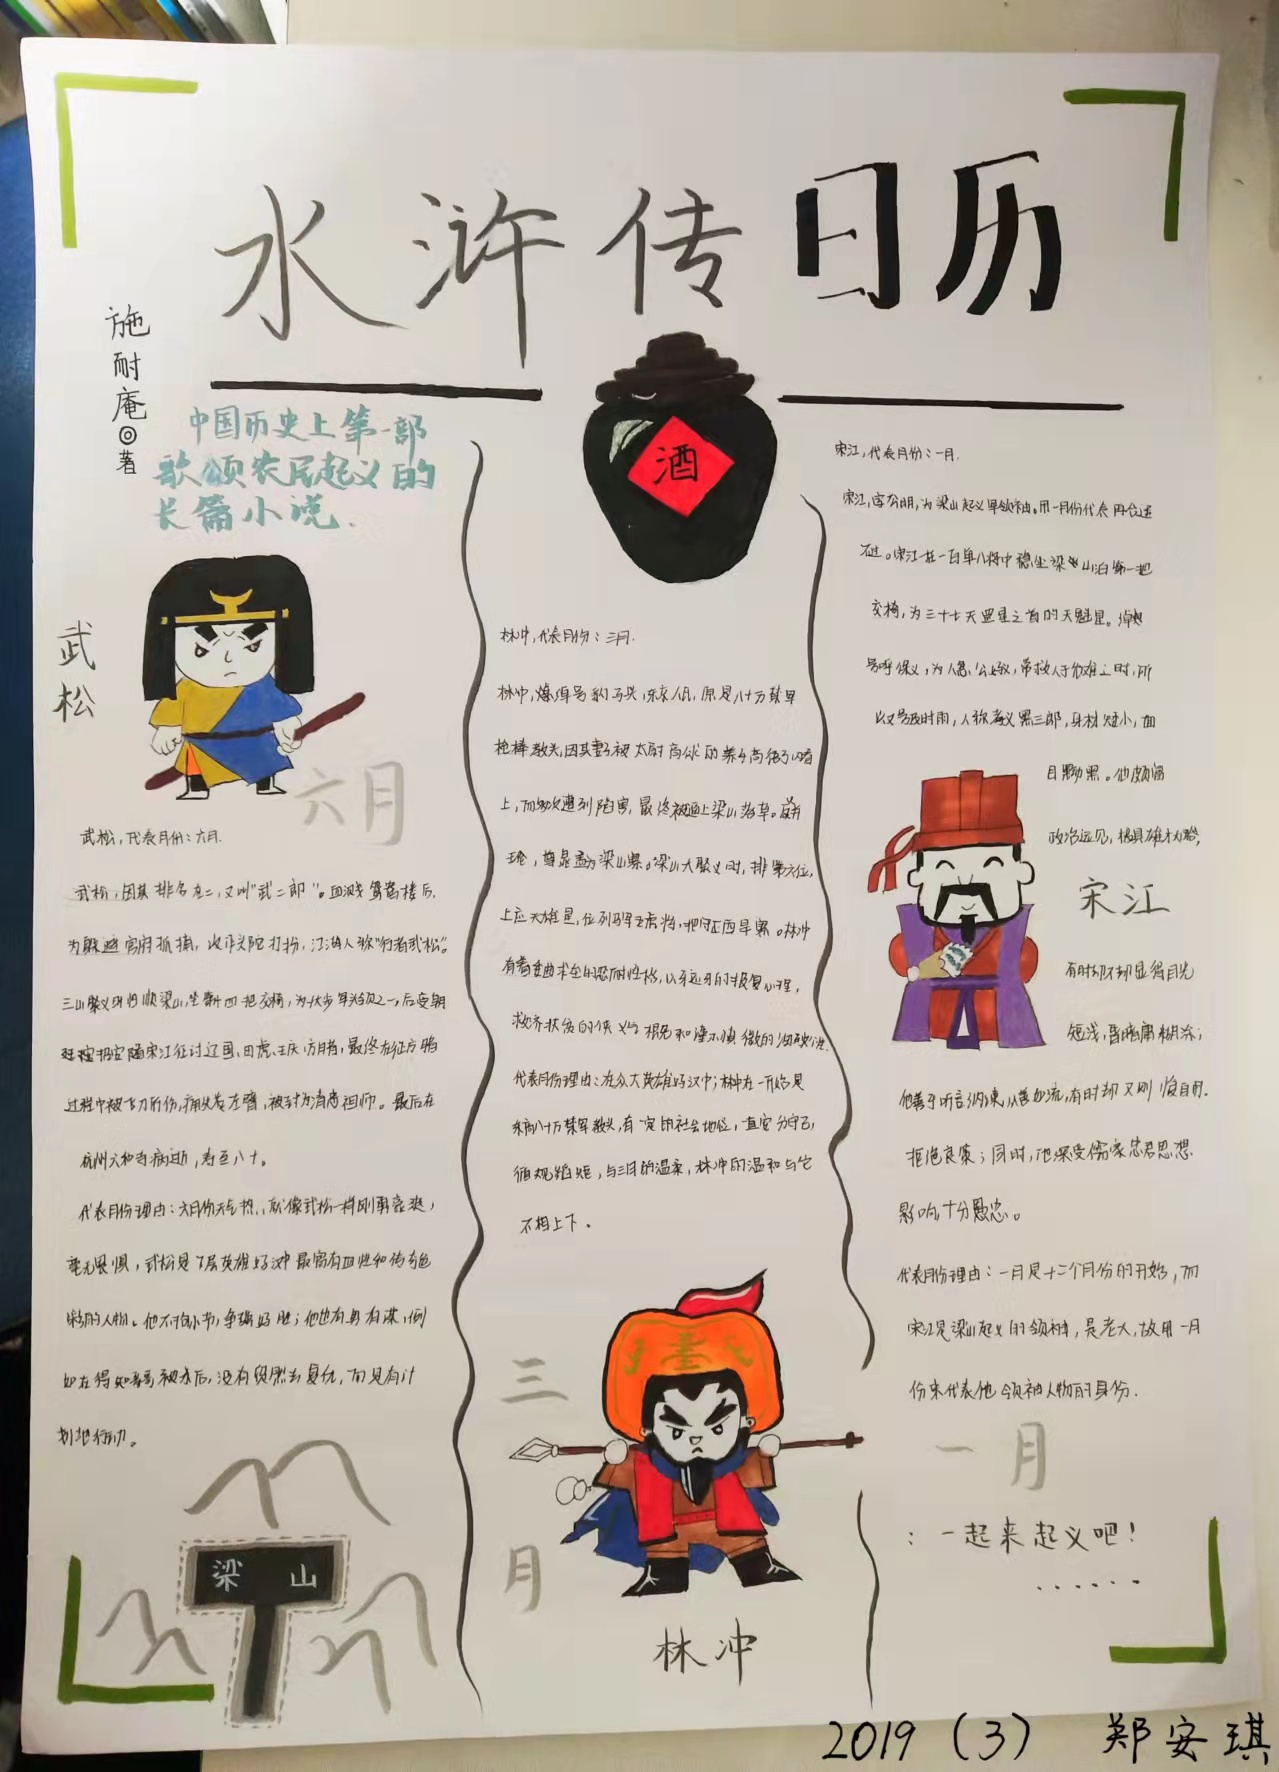 水浒传日历
施耐庵◎著
中国历史上第一部
歌颂农民起义的
长篇小说.
武松
六月
武松，代表月份：六月.
武松，因其排名在二，又叫“武二郎”。血溅鸳鸯楼后，
为躲避官府抓捕，改作头陀打扮，江湖人称“行者武松”。
三山聚义时归顺梁山，坐第十四把交椅，为十大步军头领之一，后受朝
廷招安随宋江征讨辽国、田虎、王庆、方腊，最终在征方腊
过程中被飞刀所伤，痛失左臂，被封为清忠祖师。最后在
杭州六和寺病逝，寿至八十。
代表月份理由：六月份天气热，就像武松一样刚勇豪爽，
毫无畏惧，武松是下层英雄好汉中最富有血性和传奇色
彩的人物。他不拘小节，争强好胜；他也有勇有谋，例
如在得知哥哥被杀后，没有贸然去复仇，而是有计
划地行动。
梁山
酒
林冲，代表月份：三月.
林冲，绰号豹子头，东京人氏，原是八十万禁军
枪棒教头，因其妻子被太尉高俅的养子高衙内看
上，而多次遭到陷害，最终被逼上梁山落草。火并
王伦，尊晁盖为梁山寨。梁山大聚义时，排第六位，
上应天雄星，位列马军五虎将，把守正西旱寨。林冲
有着委曲求全的忍耐性格，以牙还牙的报复心理，
救济扶危的侠义与
代表月份理由：在众大英雄好汉中；林冲在一开始是
东京八十万禁军教头，有一定的社会地位，直定分守己，
循规蹈矩，与三月的温柔，林冲的温和与它
不相上下。
三月
林冲
宋江，代表月份：一月.
宋江，字公明，为梁山起义军领袖。用一月份代表再合适
不过。宋江在一百单八将中稳坐梁山泊第一把
交椅，为三十六天罡星之首的天魁星。绰
号呼保义，为人，常救人于危难之时，所
以又号及时雨，人称孝义黑三郎，身材短小，面
目黝黑。他颇富
政治远见，极具雄才大略，
宋江
有时却不却显得目光
短浅，昏暗庸糊涂；
他善于听言纳谏，从善如流，有时却又刚愎自用.
拒绝良策；同时，他深受儒家忠君思想
影响，十分愚忠。
代表月份理由：一月是十二个月份的开始，而
宋江是梁山起义的领袖，是老大，故用一月
份来代表他领袖人物的身份.
一月
：一起来起义吧！
......
2019（3） 郑安琪